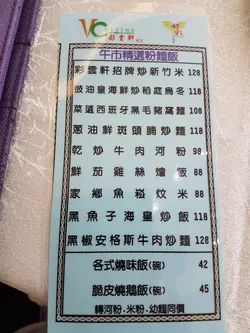 VC CUISINE
彩雲軒
午市精選粉麵飯
彩雲軒招牌炒新竹米 128
豉油皇海鮮炒稻庭烏冬 118
菜遠西班牙黑毛豬窩麵 108
蔥油鮮斑頭腩炆麵 118
乾炒牛肉河粉 98
鮮茄雞絲燴飯 88
家鄉魚崧炆米 88
黑魚子海皇炒飯 118
黑椒安格斯牛肉炒麵 118
各式燒味飯(碗) 42
脆皮燒鵝飯(碗) 45
轉河粉.米粉.幼麵同價